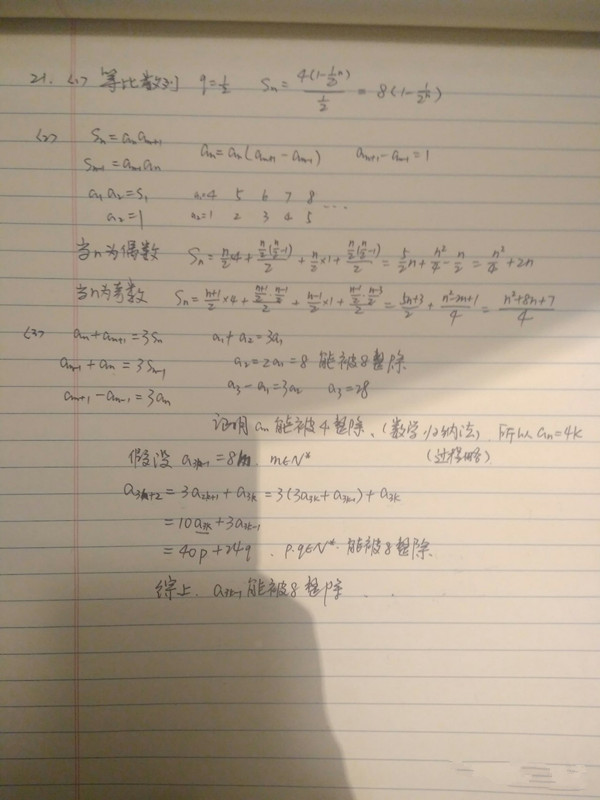 21. (1) 等比数列 q=1/2 Sn = 4(1-1/2^n) / 1/2 = 8(1-1/2^n)
(2) Sn = an an+1
Sn-1 = an-1 an
an = an(an+1 - an-1) an+1 - an-1 = 1
a1 a2 = S1
a2 = 1
a1=4 5 6 7 8
a2=1 2 3 4 5 ...
当n为偶数 Sn = n/2 4 + n/2(n/2-1)/2 + n/2×1 + n/2(n/2-1)/2 = 5/2 n + n²/4 - n/2 = n²/4 + 2n
当n为奇数 Sn = n+1/2 ×4 + n+1/2·n-1/2 /2 + n-1/2 ×1 + n-1/2·n-3/2 /2 = 5n+3/2 + n²-2n+1/4 = n²+8n+7/4
(3) an + an+1 = 3Sn a1 + a2 = 3a1
an-1 + an = 3Sn-1 a2 = 2a1 = 8 能被8整除
an+1 - an-1 = 3an a3 - a1 = 3a2 a3 = 28
证明 an 能被4整除、(数学归纳法) 所以 an=4k
(过程略)
假设 a3k-1 = 8m. m∈N*
a3k+2 = 3a3k+1 + a3k = 3(3a3k + a3k-1) + a3k
= 10a3k + 3a3k-1
= 40p + 24q . p.q∈N* 能被8整除
综上. a3k-1 能被8整除